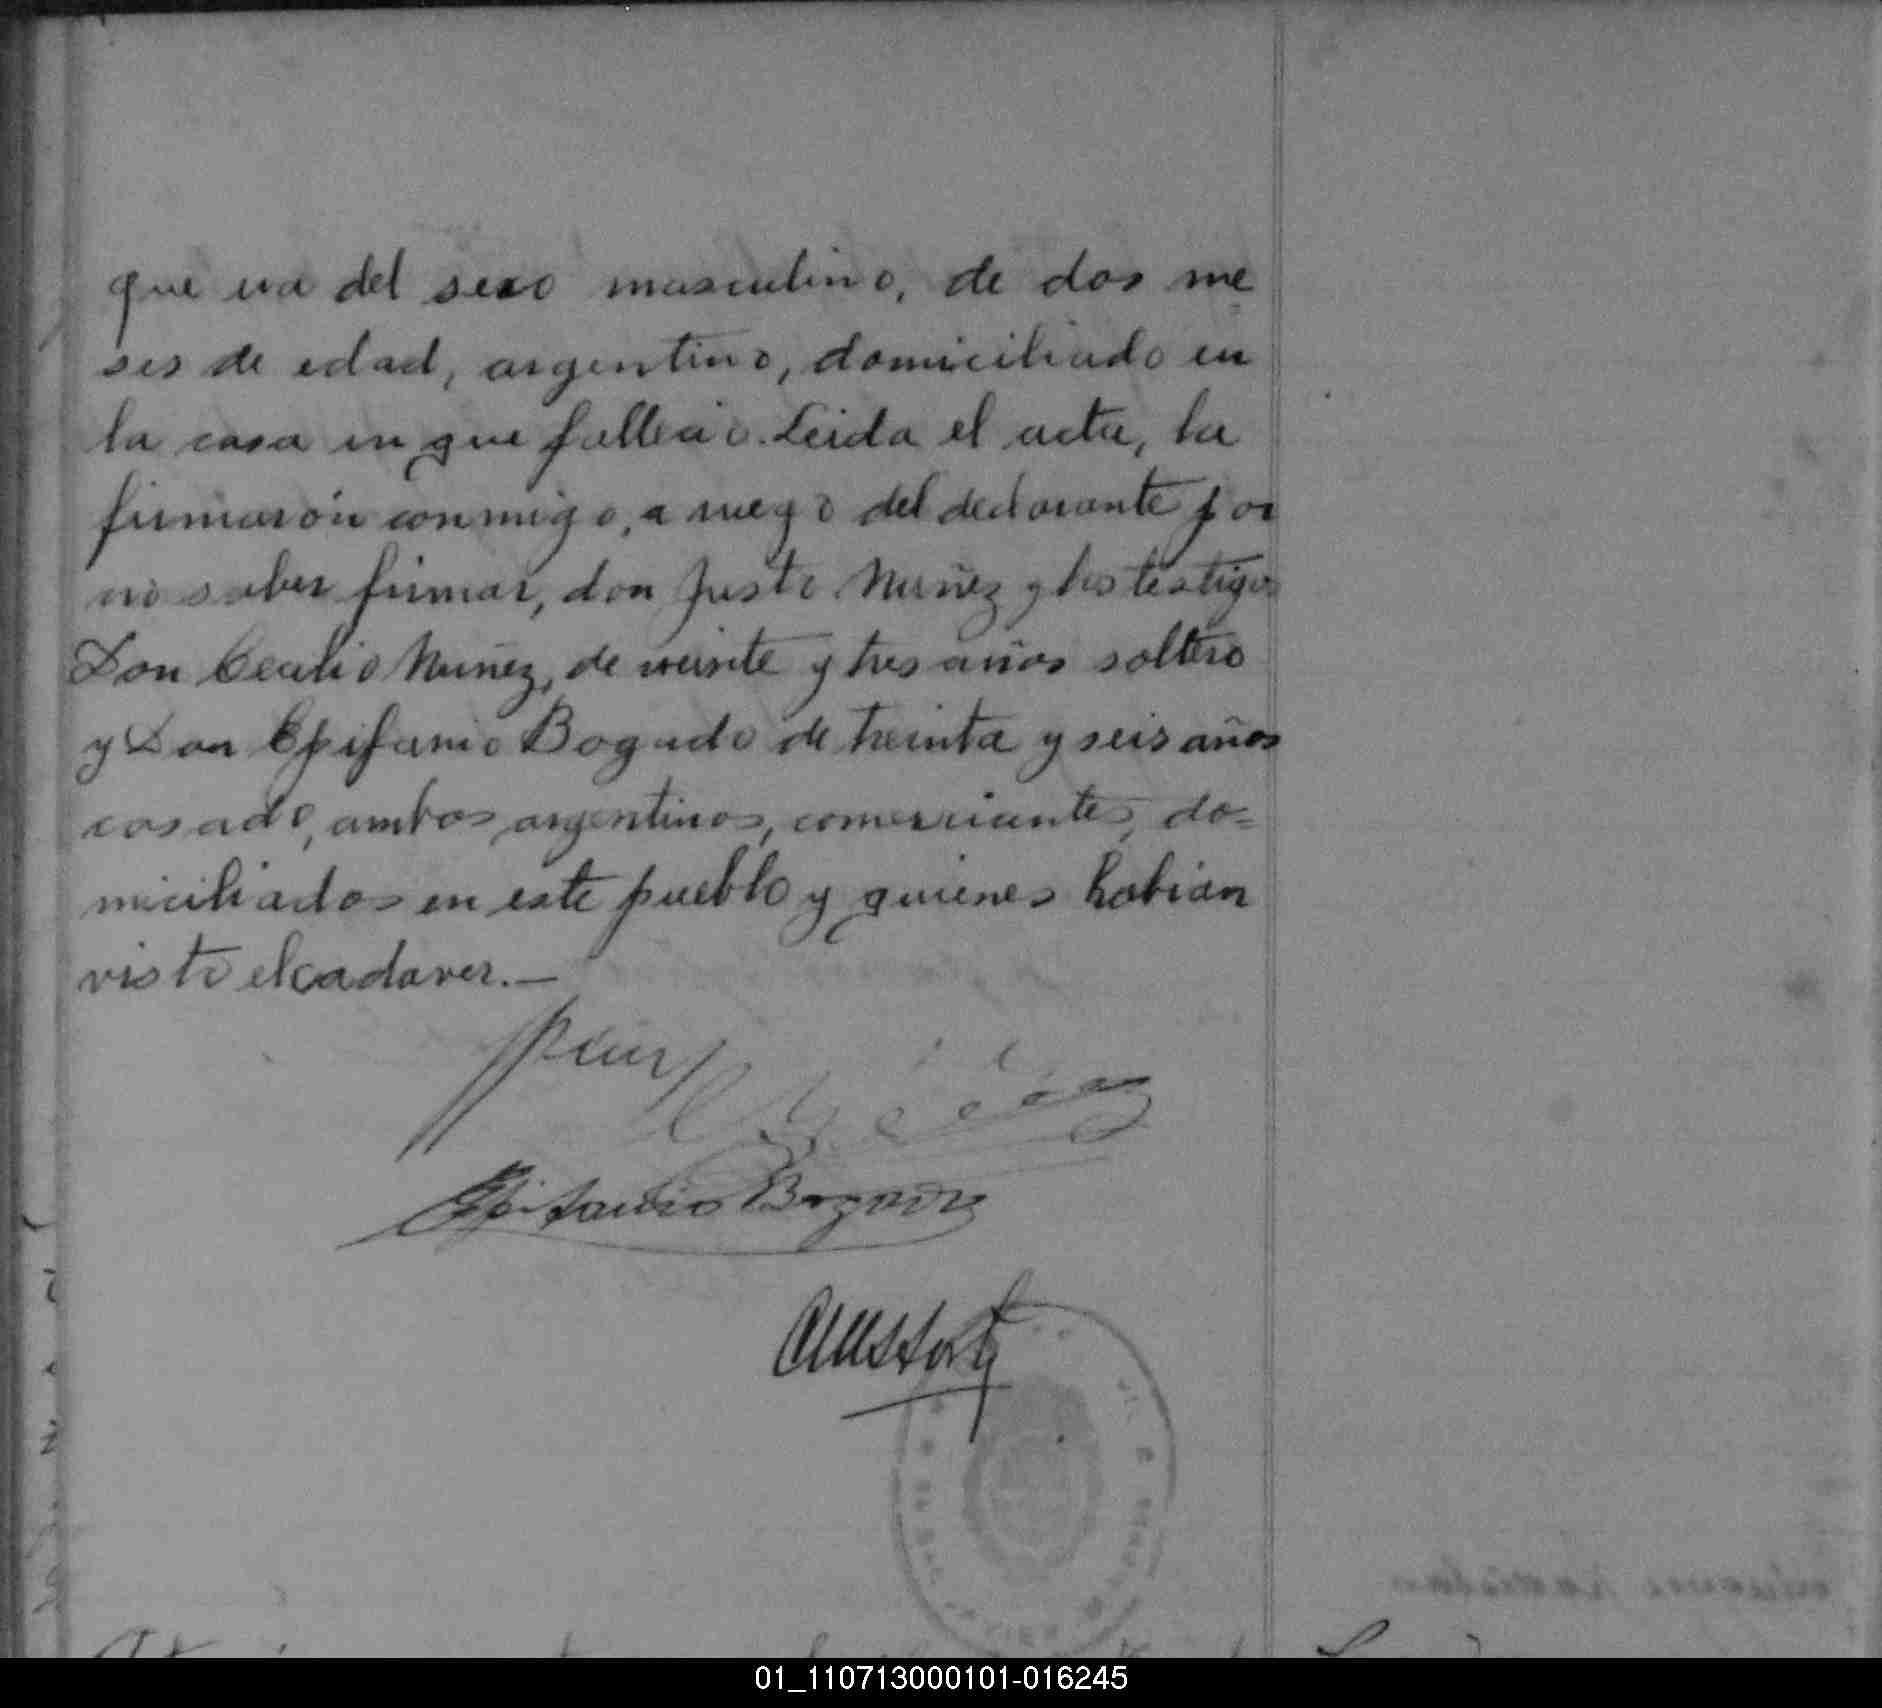 que era del sexo masculino, de dos me
ses de edad, argentino, domiciliado en
la casa en que fallecio. Leida el acta, la
firmarón conmigo, a ruego del declarante por
no saber firmar, don Justo Nuñez y los testigos
Don Cecilio Nuñez, de veinte y tres años soltero
y Don Epifanio Bogado de treinta y seis años
casado, ambos argentinos, comerciantes, do=
miciliados en este pueblo y quienes habian
visto el cadaver.—
Epifanio Bogado
01_110713000101-016245